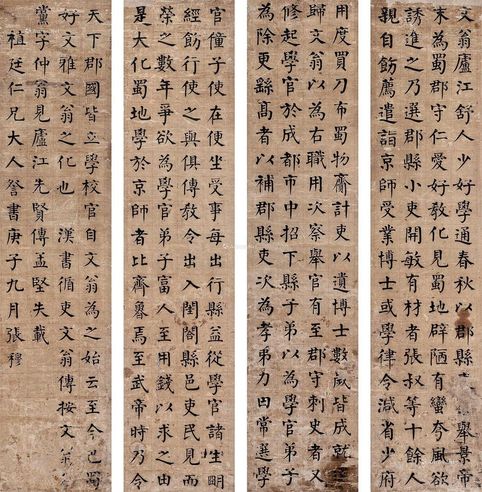 文翁廬江舒人少好學通春秋以郡縣舉景帝
末為蜀郡守仁愛好教化見蜀地辟陋有蠻夷風欲
誘進之乃選郡縣小吏開敏有材者張叔等十餘人
親自飭厲遣詣京師受業博士或學律令減省少府
用度買刀布蜀物齎計吏以遺博士數歲皆成就
歸文翁以為右職用次察舉官有至郡守刺史者又
修起學官於成都市中招下縣子弟以為學官弟子
為除更繇高者以補郡縣吏次為孝弟力田常選學
官僮子使在便坐受事每出行縣益從學官諸生明
經飭行使之與俱傳教令出入閨閤縣邑吏民見而
榮之數年爭欲為學官弟子富人至用錢以求之由
是大化蜀地學於京師者比齊魯焉至武帝時乃令
天下郡國皆立學校官自文翁為之始云至今巴蜀
好文雅文翁之化也 漢書循吏文翁傳按文翁
黨字仲翁見廬江先賢傳孟堅失載
植廷仁兄大人詧書庚子九月張穆